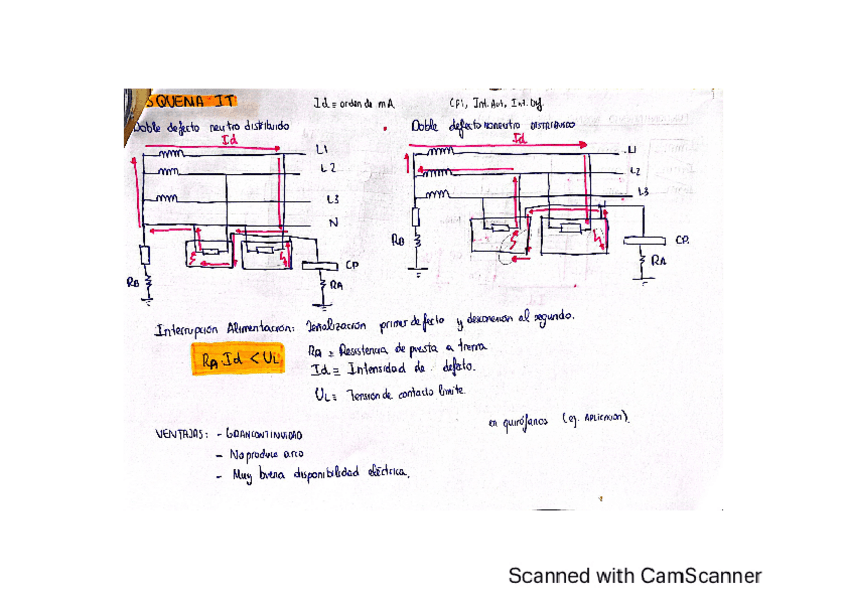 ESQUEMA IT
Id ≡ orden de mA
CPI, Int. Aut, Int. Dif.
Doble defecto neutro distribuido
Doble defecto no neutro DISTRIBUIDO
Id
Id
L1
L2
L3
N
RB
CP
RA
L1
L2
L3
RB
CP.
RA
Interrupción Alimentación: Señalización primer defecto y desconexión al segundo.
RA Id < UL
RA ≡ Resistencia de puesta a tierra
Id ≡ Intensidad de defecto.
UL ≡ Tensión de contacto límite.
en quirófanos (ej. APLICACION).
VENTAJAS: - GRAN CONTINUIDAD
- No produce arco
- Muy buena disponibilidad eléctrica.
Scanned with CamScanner